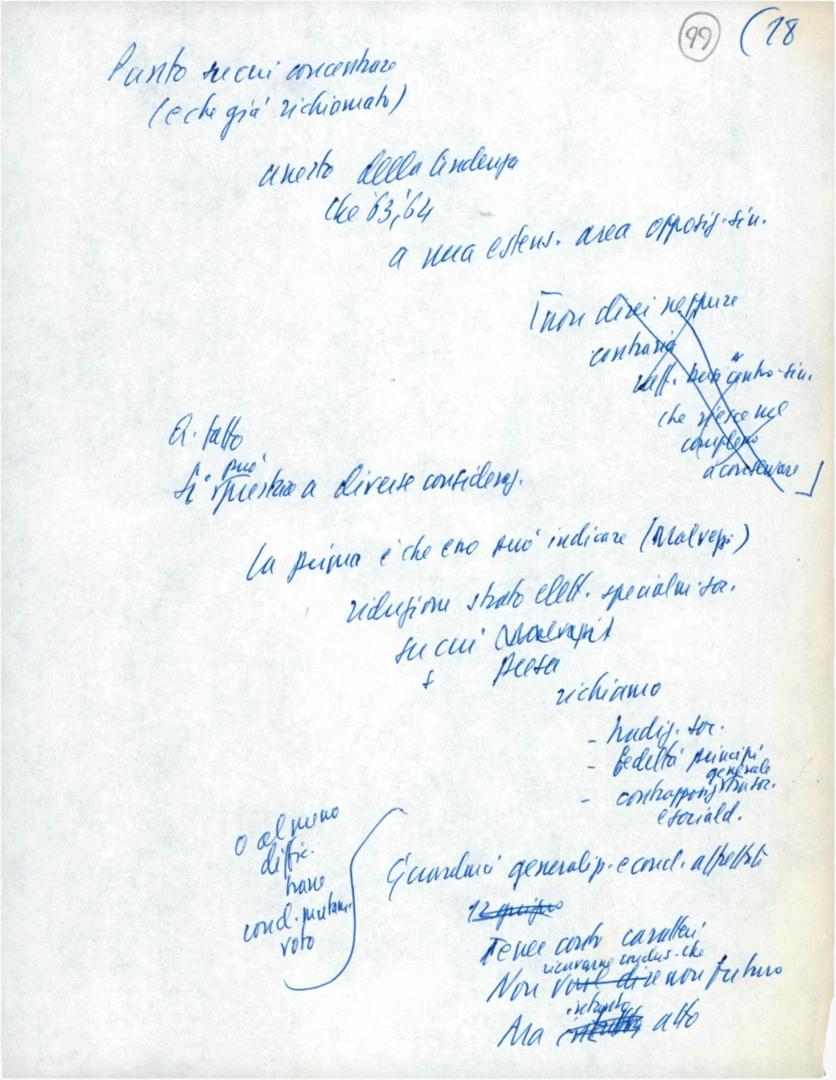 99 (18
Punto su cui concentrare
(e che già richiamato)
arresto della tendenza
che 63, 64
a una estens. area opposiz. sin.
[non direi neppure
contraria
centro-sin.
che riesce nel
complesso
a conservare]
Q. fatto
può
Si prestare a diverse consideraz.
La prima è che esso può indicare (Malvezzi)
riduzione strato elett. specialm. soc.
su cui
presa
richiamo
- tradiz. soc.
- fedeltà principi
generale
- contrapposiz. soc.
e sociald.
o almeno
diffic.
trarre
cond. mutam.
voto
Guardarci generalizz. e concl. affrettate
12 giugno
Tener conto caratteri
ricavarne conclus. che
Non vuol dire non futuro
intanto
Ma alto